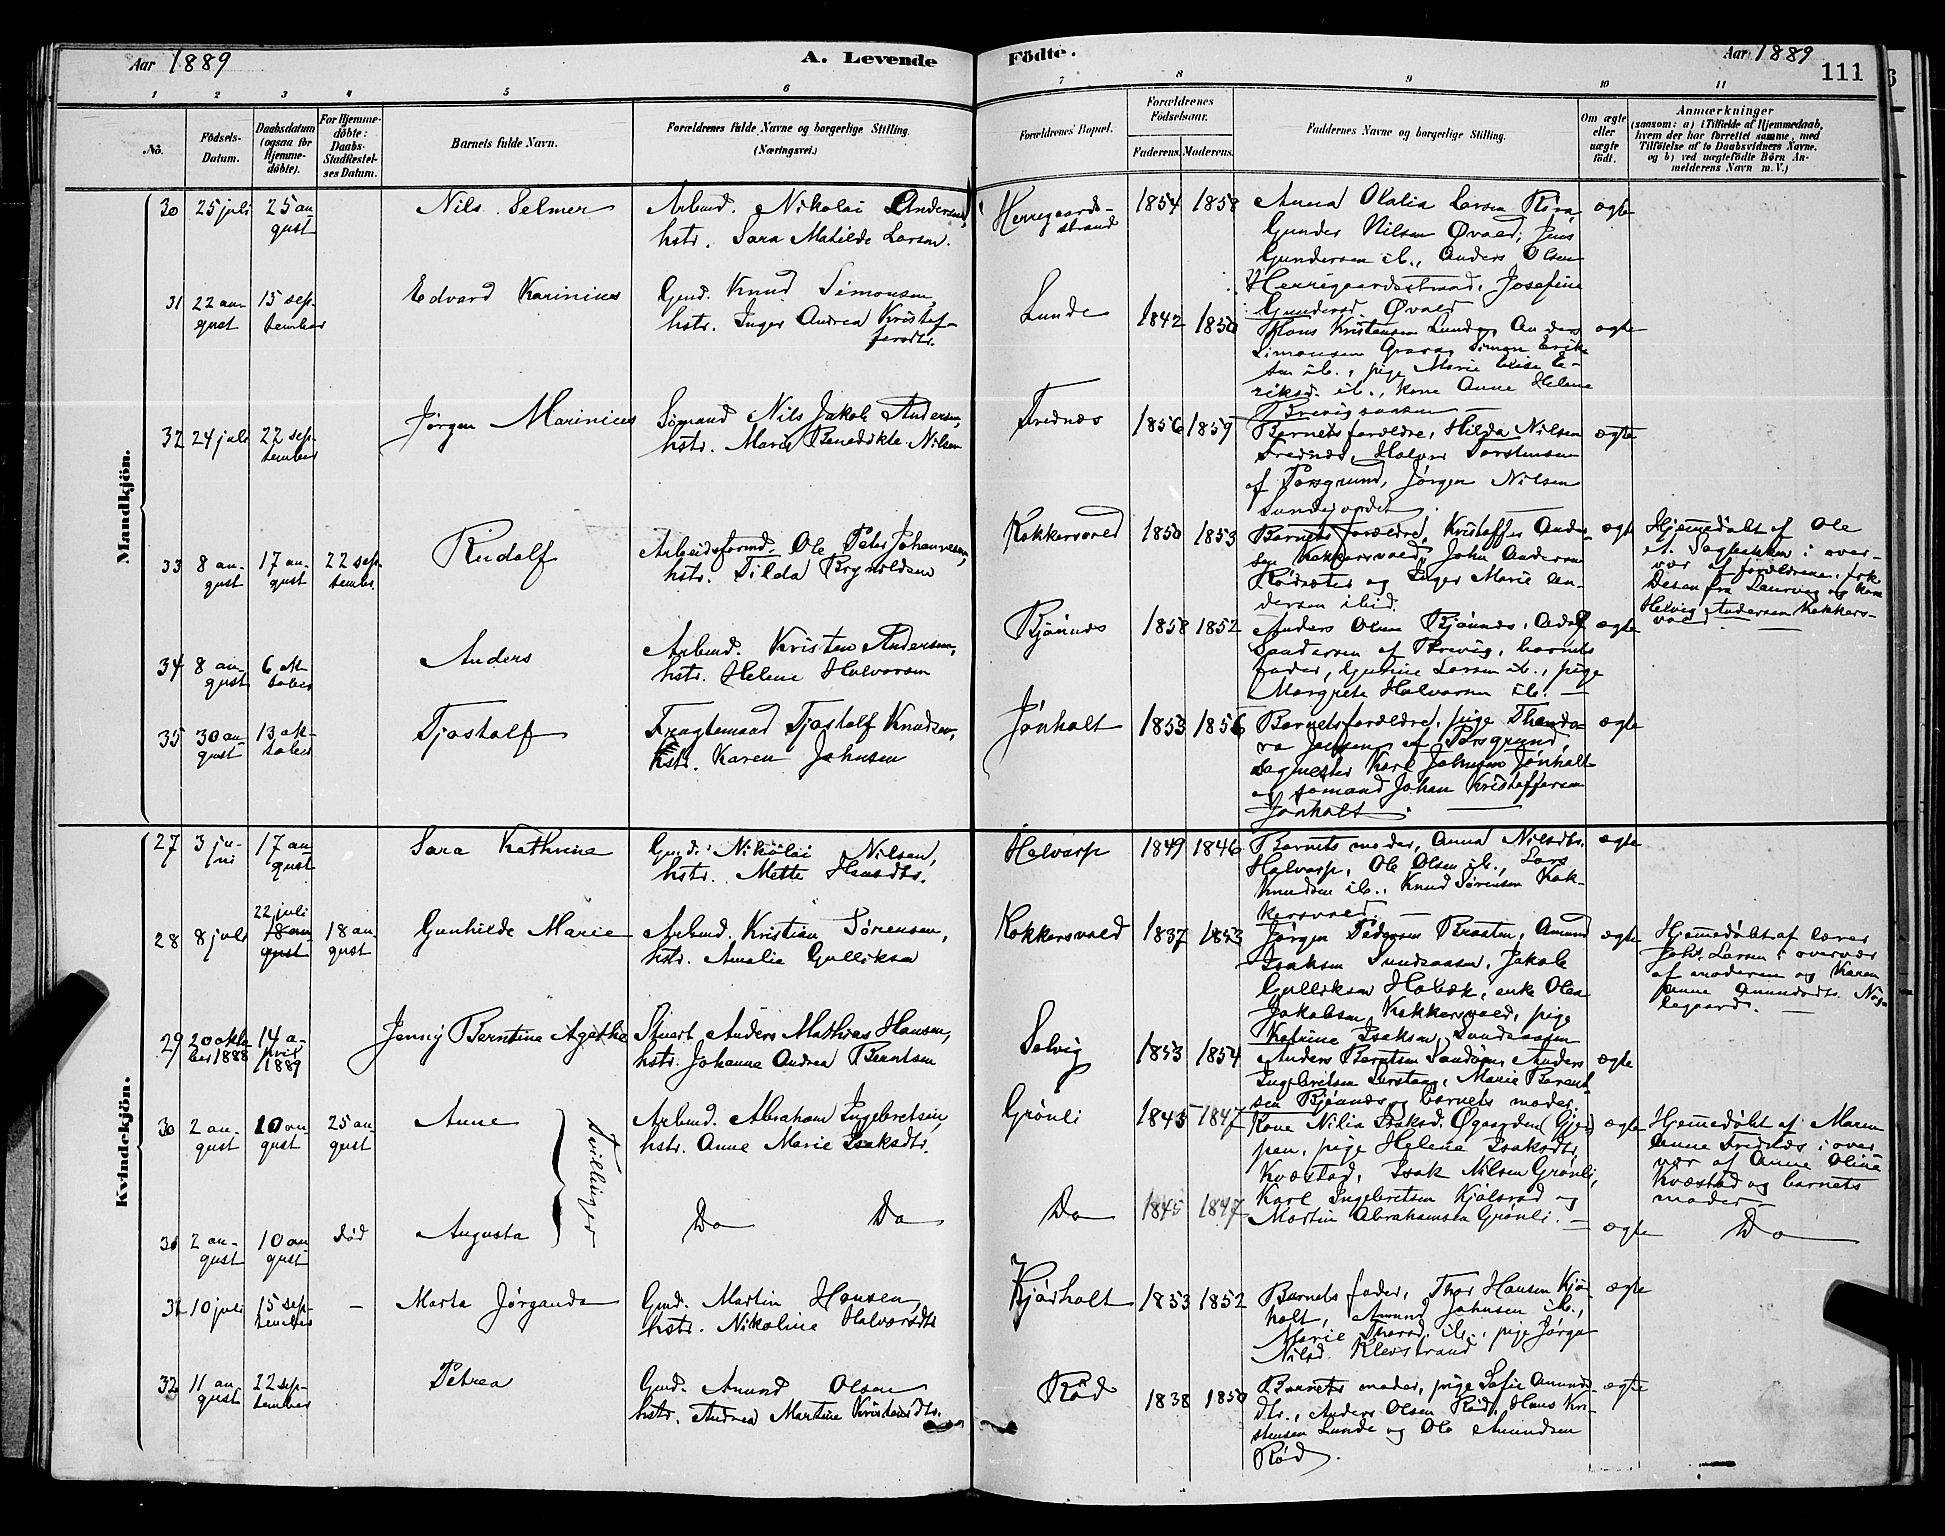 Aar 1889
A. Levende
Fødte.
Aar 1889
111
1 2 3 4 5 6 7 8 9 10 11
No.
Fødsels-
Datum.
Daabsdatum
(ogsaa for
Hjemme-
døbte).
For Hjemme-
døbte:
Daabs-
Stadfæstel-
ses Datum.
Barnets fulde Navn.
Forældrenes fulde Navne og borgerlige Stilling.
(Næringsvei.)
Forældrenes Bopæl.
Forældrenes
Fødselsaar.
Faderens. Moderens.
Faddernes Navne og borgerlige Stilling.
Om ægte
eller
uægte
født.
Anmærkninger
(saasom: a) i Tilfælde af Hjemmedaab,
hvem der har forrettet samme, med
Tilføielse af to Daabsvidners Navne,
og b) ved uægtefødte Børn An-
melderens Navn m. V.)
Mandkjøn.
30 25 juli 25 au-
gust
Nils Selmer
Arbmd. Nikolai Andersen,
hstr. Sara Matilde Larsen.
Herregaards-
strand
1854 1858
Anna Olalia Larsen
Gunder Nilsen Øvald, Jens
Gundersen ib., Anders Olsen
Herregaardsstrand, Josefine
Gundersd. Øvald
ægte
31 22 au-
gust
15 sep-
tember
Edvard Karinius
Gmd. Knud Simonsen,
hstr. Inger Andrea Kristof-
fersdtr.
Lunde
1842 1850
Hans Kristensen Lunde, Anders
Simonsen Grava, Simon Erik-
sen ib., pige Marie Elise E-
riksd. ib., kone Anne Helene
Brevigsaasen
ægte
32 24 juli 22 sep-
tember
Jørgen Marinius
Sømand Nils Jakob Andersen,
hstr. Marie Benedikte Nilsen
Frednæs
1856 1859
Barnets forældre, Hilda Nilsen
Frednæs, Halvor Torstensen
af Porsgrund, Jørgen Nilsen
ægte
33 8 au-
gust
17 au-
gust
22 sep-
tember
Rudolf
Arbeidsformd. Ole Peter Johannesen,
hstr. Tilda Brynildsen
Kokkersvold
1850 1853
Barnets forældre, Kristoffer Ander-
sen Kokkersvold, John Andersen
Rødsæter og Inger Marie An-
dersen ibid.
ægte
Hjemedøbt af Ole
A. Sagbakken i over-
vær af forældrene, frk
Desen fra Laurvig og kone
Helvig Andersen Kokkers-
vold
34 8 au-
gust
6 ok-
tober
Anders
Arbmd. Kristen Andersen,
hstr. Helene Halvorsen
Bjønnes
1858 1852
Anders Olsen Bjønnes, Adolf
Sandersen af Brevig, barnets
fader, Gustine Larsen ib., pige
Margrete Halvorsen ib.
ægte
35 30 au-
gust
13 ok-
tober
Tjostolf
Fragtemand Tjostolf Knudsen,
hstr. Karen Johnsen
Jønholt
1853 1856
Barnets forældre, pige Thando-
ra Jensen af Porsgrund,
sagmester Karl Johnsen Jønholt
og sømand Johan Kristoffersen
Jønholt.
ægte
Kvindekjøn.
27 3 ju-
ni
17 au
gust
Sara Kathrine
Gmd. Nikolai Nilsen,
hstr. Mette Hansdtr.
Helvarp
1849 1846
Barnets moder, Anna Nilsdtr.
Halvarp, Ole Olsen ib., Lars
Knudsen ib., Knud Sørensen Kok-
kersvold.
ægte
28 8 juli
22 juli
18 au
gust
18 au-
gust
Gunhilde Marie
Arbmd. Kristian Sørensen,
hstr. Amalie Gulliksen
Kokkersvold
1837 1853
Jørgen Pedersen Braaten, Amund
Isaksen Sundsaasen, Jakob
Gulliksen Holbæk, enke Olea
Jakobsen Kokkersvold, pige
Katrine Isaksen Sundsaasen
ægte
Hjemmedøbt af lærer
Johs. Larsen i overvær
af moderen og Karen
Amundsdtr.
29 20 okto-
ber 1888
14 a-
pril
1889
Jenny Berntine Agathe
Stuert Anders Mathias Hansen,
hstr. Johanne Andrea Berntsen
Selvig
1853 1854
Anders Berntsen Sandøen, Anders
Ingebretsen, Marie Berent
sen Bjønnes og barnets moder
ægte
30 2 au-
gust
10 au-
gust
25 au-
gust
Anne
Tvillinger
Arbmd. Abraham Ingebretsen,
hstr. Anne Marie Isaksdtr.
Grønli
1845 1847
Kone Nilia Isaksd. Øgaarden (Gjer
pen, pige Helene Isaksdtr.
Kvæstad, Isak Nilsen Grønli,
Karl Ingebretsen Kjølsrød og
Martin Abrahamsen Grønli.
ægte
Hjemmedøbt af Maren
Anne Frednæs i over-
vær af Anne Oline
Kvæstad og barnets
moder
31 2 au-
gust
10 au
gust
død
Augusta
Do Do
Do
1845 1847
ægte
Do
31 10 juli 15 sep-
tember
–
Marta Jørganda
Gmd. Martin Hansen,
hstr. Nikoline Halvorsdtr.
Kjørholt
1853 1852
Barnets fader, Thor Hansen Kjør
holt, Amund Johnsen ib.,
Marie Thorsd. ib., pige Jørga
Nilsd. Klevstrand
ægte
32 11 au-
gust
22 sep-
tember
Petrea
Gmd. Amund Olsen
hstr. Andrea Martine Kristensdtr.
Rød
1838 1850
Barnets moder, pige Sofie Amunds-
dtr., Anders Olsen Rød, Hans Kri-
stensen Lunde og Ole Amundsen
Rød.
ægte